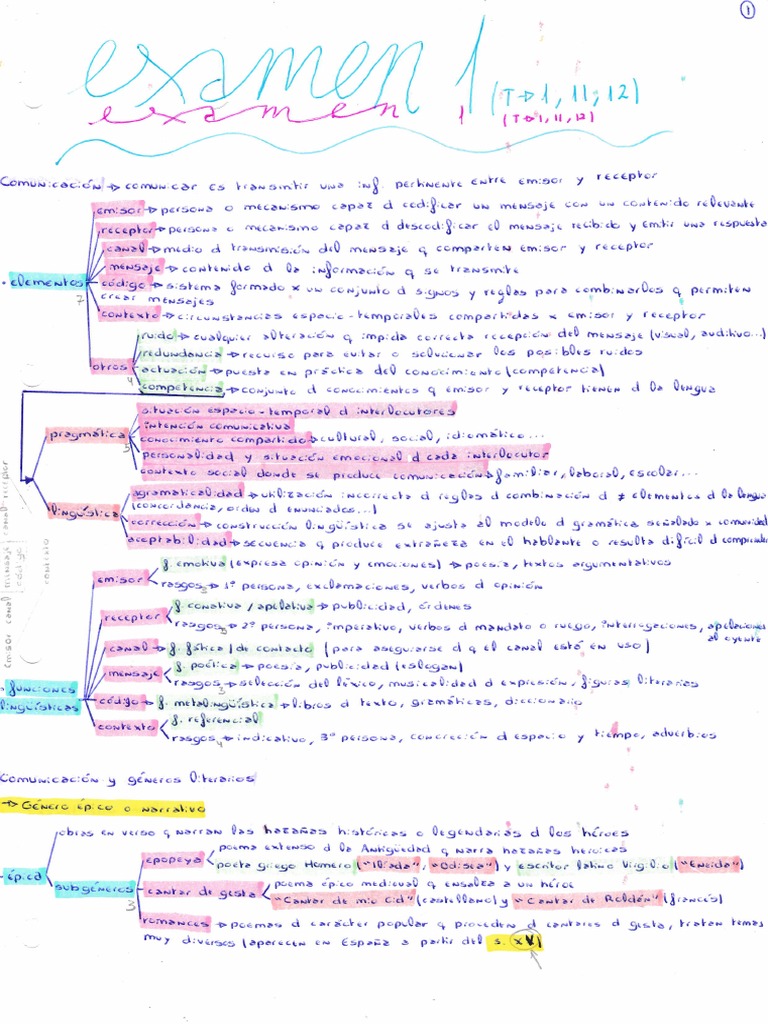 1
examen 1 (T→1, 11, 12)
examen 1 (T→1, 11, 12)
Comunicación → comunicar es transmitir una inf. pertinente entre emisor y receptor
emisor → persona o mecanismo capaz d codificar un mensaje con un contenido relevante
receptor → persona o mecanismo capaz d descodificar el mensaje recibido y emitir una respuesta
canal → medio d transmisión del mensaje q comparten emisor y receptor
mensaje → contenido d la información q se transmite
· elementos 7
código → sistema formado x un conjunto d signos y reglas para combinarlos q permiten
crear mensajes
contexto → circunstancias espacio-temporales compartidas x emisor y receptor
otros 4
ruido → cualquier alteración q impida correcta recepción del mensaje (visual, auditivo...)
redundancia → recurso para evitar o solucionar los posibles ruidos
actuación → puesta en práctica del conocimiento (competencia)
competencia → conjunto d conocimientos q emisor y receptor tienen d la lengua
pragmática 5
situación espacio-temporal d interlocutores
intención comunicativa
conocimiento compartido → cultural, social, idiomático...
personalidad y situación emocional d cada interlocutor
contexto social donde se produce comunicación → familiar, laboral, escolar...
lingüística
agramaticalidad → utilización incorrecta d reglas d combinación d ≠ elementos d la lengua
(concordancia, orden d enunciados...)
corrección → construcción lingüística se ajusta al modelo d gramática señalado x comunidad
aceptabilidad → secuencia q produce extrañeza en el hablante o resulta difícil d comprender
emisor canal mensaje canal receptor
código
contexto
· funciones
lingüísticas
emisor
f. emotiva (expresa opinión y emociones) → poesía, textos argumentativos
rasgos 3 → 1ª persona, exclamaciones, verbos d opinión
receptor
f. conativa / apelativa → publicidad, órdenes
rasgos 5 → 2ª persona, imperativo, verbos d mandato o ruego, interrogaciones, apelaciones
al oyente
canal → f. fática / de contacto (para asegurarse d q el canal está en uso)
mensaje
f. poética → poesía, publicidad (eslogan)
rasgos 3 → selección del léxico, musicalidad d expresión, figuras literarias
código → f. metalingüística → libros d texto, gramáticas, diccionario
contexto
f. referencial
rasgos 4 → indicativo, 3ª persona, concreción d espacio y tiempo, adverbios
Comunicación y géneros literarios
→ Género épico o narrativo
· épica
obras en verso q narran las hazañas históricas o legendarias d los héroes
subgéneros 3
epopeya
poema extenso d la Antigüedad q narra hazañas heroicas
poeta griego Homero ("Ilíada", "Odisea") y escritor latino Virgilio ("Eneida")
cantar de gesta
poema épico medieval q ensalza a un héroe
"Cantar de mio Cid" (castellano) y "Cantar de Roldán" (francés)
romances → poemas d carácter popular q proceden d cantares d gesta, tratan temas
muy diversos (aparecen en España a partir del s. XV)